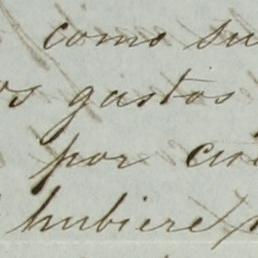 como su
os gastos
por
hubiere